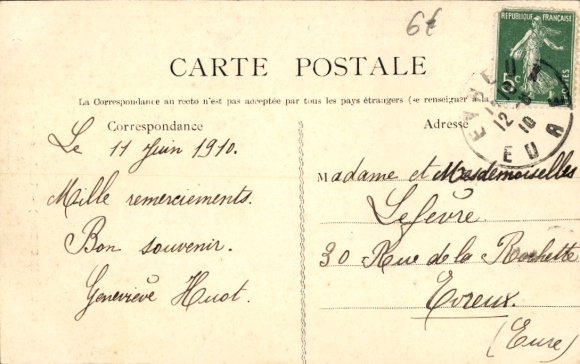 6€
REPUBLIQUE FRANÇAISE
CARTE POSTALE
La Correspondance au recto n'est pas acceptée par tous les pays étrangers (se renseigner à la
Correspondance
Le 11 Juin 1910.
Mille remerciements.
Bon souvenir.
Geneviève Huot.
Adresse
12 - 6
10
EURE
Madame et Mesdemoiselles
Lefèvre
30 Rue de la Rochette
Evreux.
(Eure)